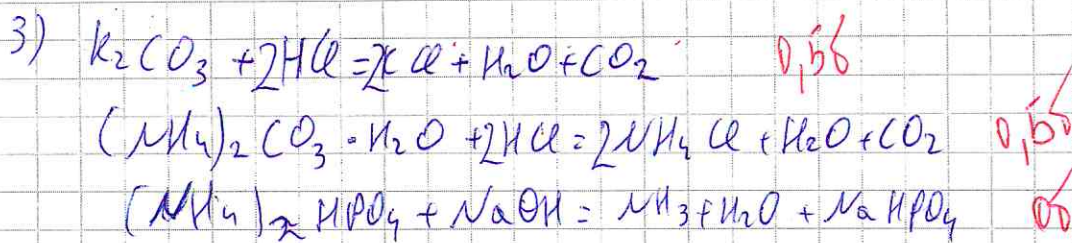 3) K₂CO₃ + 2HCl = 2KCl + H₂O + CO₂ 0,5б
(NH₄)₂CO₃ · H₂O + 2HCl = 2NH₄Cl + H₂O + CO₂ 0,5б
(NH₄)₂HPO₄ + NaOH = NH₃ + H₂O + NaHPO₄ 0б